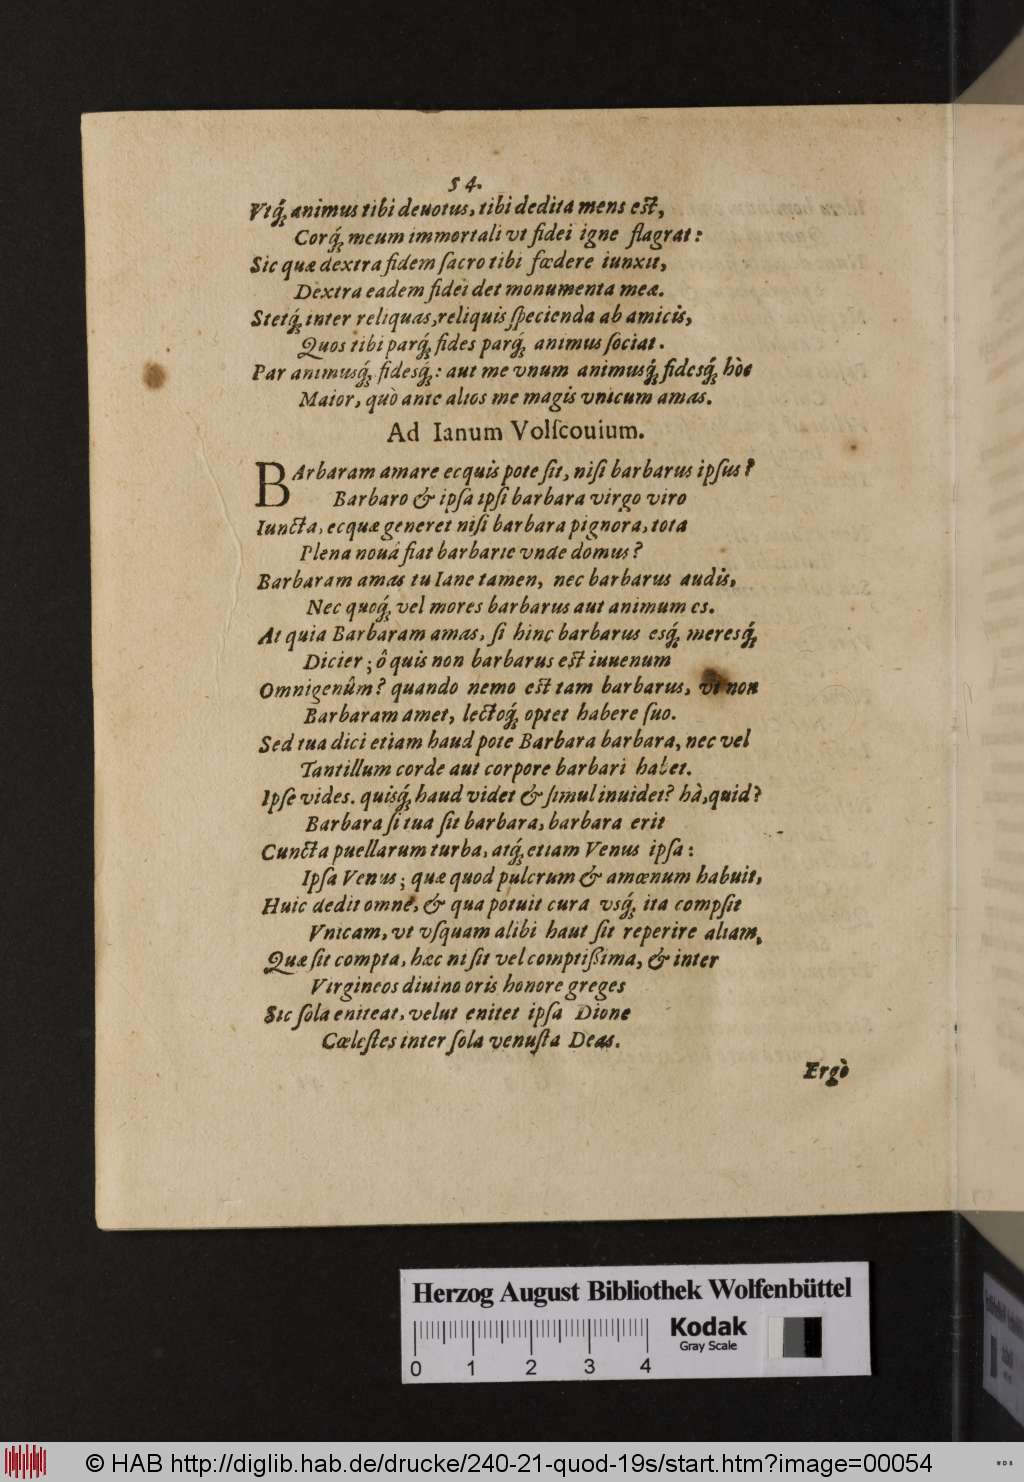 54.
Vtq́; animus tibi deuotus, tibi dedita mens est,
Corq́; meum immortali vt fidei igne flagrat:
Sic quæ dextra fidem ſacro tibi fœdere iunxit,
Dextra eadem fidei det monumenta meæ.
Stetq́; inter reliquas, reliquis ſpecienda ab amicis,
Quos tibi parq́; fides parq́; animus ſociat.
Par animusq́; fidesq́;: aut me vnum animusq́; fidesq́; hòc
Maior, quò ante alios me magis vnicum amas.
Ad Ianum Volſcouium.
BArbaram amare ecquis pote ſit, niſi barbarus ipſus?
Barbaro & ipſa ipſi barbara virgo viro
Iuncta, ecquæ generet niſi barbara pignora, tota
Plena nouâ fiat barbarie vnde domus?
Barbaram amas tu Iane tamen, nec barbarus audis,
Nec quoq́; vel mores barbarus aut animum es.
At quia Barbaram amas, ſi hinc barbarus esq́; meresq́;
Dicier; ô quis non barbarus est iuuenum
Omnigenûm? quando nemo est tam barbarus, vt non
Barbaram amet, lectoq́; optet habere ſuo.
Sed tua dici etiam haud pote Barbara barbara, nec vel
Tantillum corde aut corpore barbari habet.
Ipſe vides. quisq́; haud videt & ſimul inuidet? hà, quid?
Barbara ſi tua ſit barbara, barbara erit
Cuncta puellarum turba, atq́; etiam Venus ipſa:
Ipſa Venus; quæ quod pulcrum & amœnum habuit,
Huic dedit omne, & qua potuit cura vsq́; ita compſit
Vnicam, vt vſquam alibi haut ſit reperire aliam,
Quæ ſit compta, hæc ni ſit vel comptißima, & inter
Virgineos diuino oris honore greges
Sic ſola eniteat, velut enitet ipſa Dione
Cœleſtes inter ſola venuſta Deas.
Ergò
Herzog August Bibliothek Wolfenbüttel
0 1 2 3 4
Kodak
Gray Scale
© HAB http://diglib.hab.de/drucke/240-21-quod-19s/start.htm?image=00054